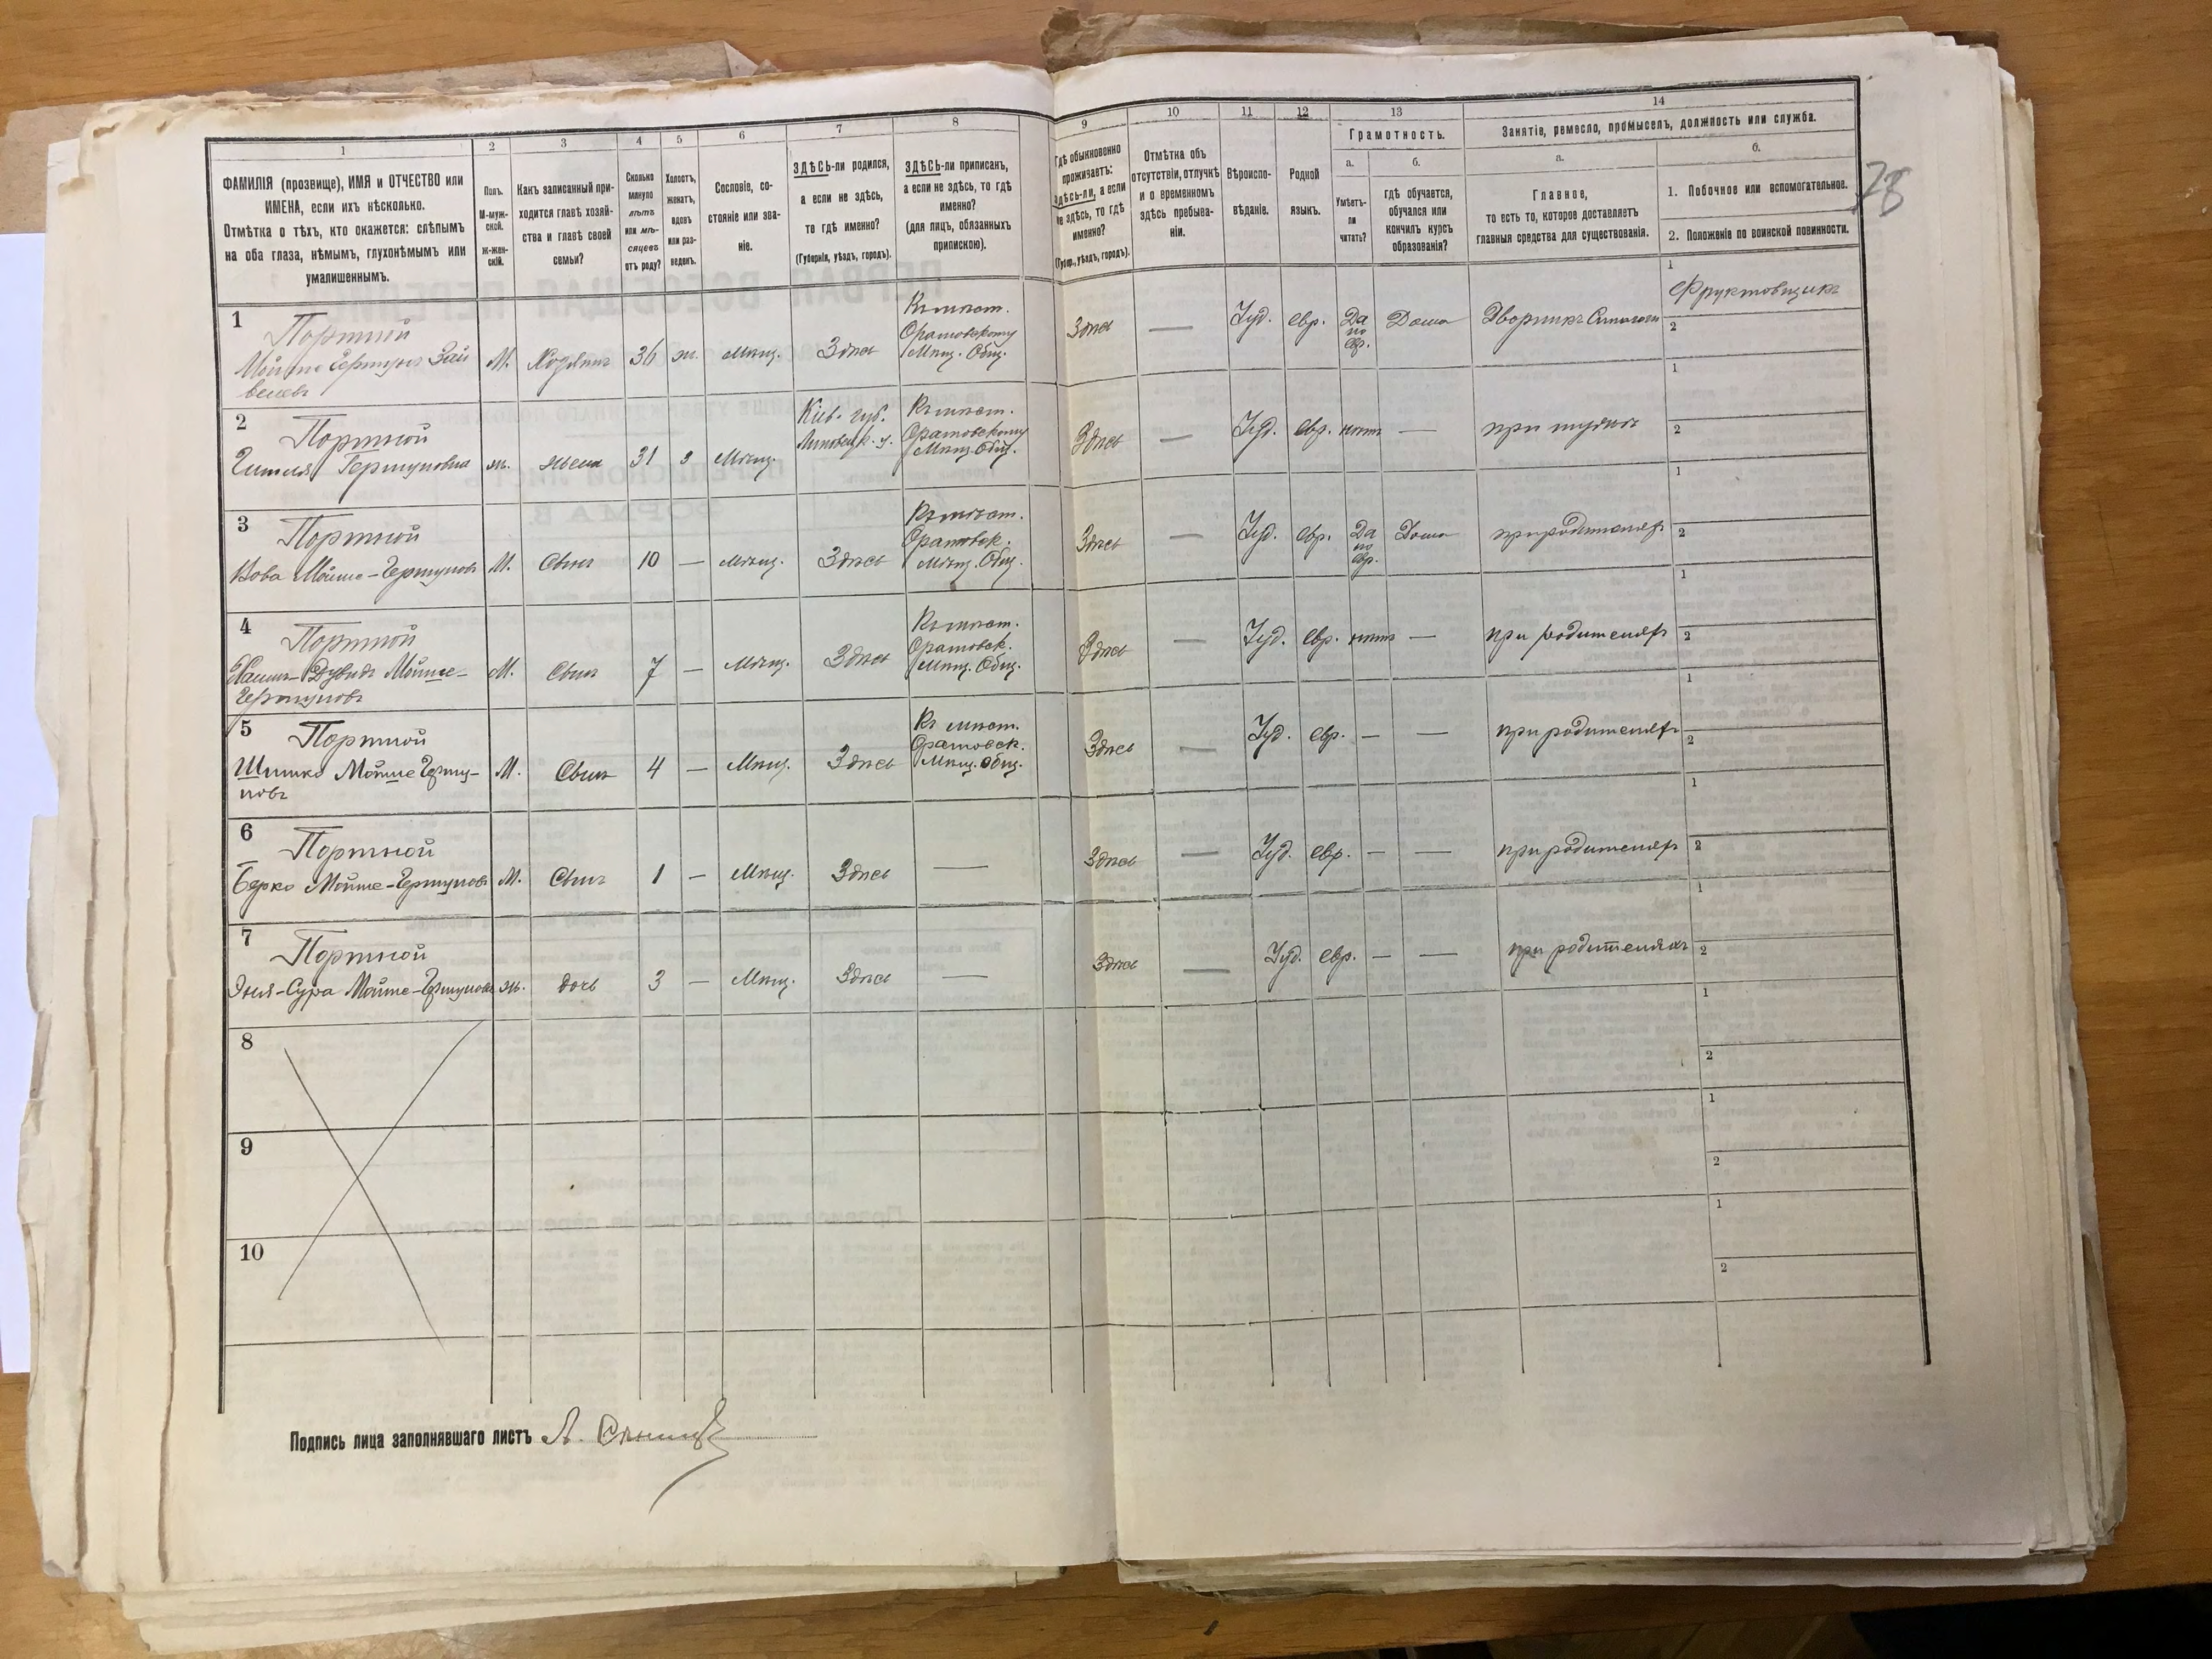 1
2
3
4
5
6
7
8
9
10
11
12
13
14
ФАМИЛІЯ (прозвище), ИМЯ и ОТЧЕСТВО или
ИМЕНА, если ихъ нѣсколько.
Отмѣтка о тѣхъ, кто окажется: слѣпымъ
на оба глаза, нѣмымъ, глухонѣмымъ или
умалишеннымъ.
Полъ.
М-муж-
ской.
Ж-жен-
скій.
Какъ записанный при-
ходится главѣ хозяй-
ства и главѣ своей
семьи?
Сколько
минуло
лѣтъ
или мѣ-
сяцевъ
отъ роду?
Холостъ,
женатъ,
вдовъ
или раз-
веденъ.
Сословіе, со-
стояніе или зва-
ніе.
ЗДѢСЬ-ли родился,
а если не здѣсь,
то гдѣ именно?
(Губернія, уѣздъ, городъ).
ЗДѢСЬ-ли приписанъ,
а если не здѣсь, то гдѣ
именно?
(для лицъ, обязанныхъ
припискою).
Гдѣ обыкновенно
проживаетъ:
здѣсь-ли, а если
не здѣсь, то гдѣ
именно?
(Губер., уѣздъ, городъ).
Отмѣтка объ
отсутствіи, отлучкѣ
и о временномъ
здѣсь пребыва-
ніи.
Вѣроиспо-
вѣданіе.
Родной
языкъ.
Грамотность.
а.
б.
Умѣетъ-
ли
читать?
гдѣ обучается,
обучался или
кончилъ курсъ
образованія?
Занятіе, ремесло, промыселъ, должность или служба.
а.
б.
Главное,
то есть то, которое доставляетъ
главныя средства для существованія.
1. Побочное или вспомогательное.
2. Положеніе по воинской повинности.
28
1
Портной
Мойше Гершунъ Зай
велевъ
М.
Хозяинъ
36
ж.
Мѣщ.
Здѣсь
Къ мѣст.
Оратовскому
Мѣщ. Общ.
Здѣсь
—
Іуд.
евр.
Да
по
евр.
Дома
Дворникъ Синагоги
1
Фруктовщикъ
2
2
Портной
Гершуновна
ж.
жена
31
з
Мѣщ.
Кіев. губ.
Липовецк. у.
Къ мѣст.
Оратовскому
Мѣщ. Общ.
Здѣсь
—
Іуд.
евр.
нѣтъ
—
при мужѣ
1
2
3
Портной
Вова Мойше-Гершуновъ
М.
Сынъ
10
—
Мѣщ.
Здѣсь
Къ мѣст.
Оратовск.
Мѣщ. Общ.
Здѣсь
—
Іуд.
евр.
Да
по
евр.
Дома
при родителях
1
2
4
Портной
Дувидъ Мойше-
Гершуновъ
М.
Сынъ
7
—
Мѣщ.
Здѣсь
Къ мѣст.
Оратовск.
Мѣщ. Общ.
Здѣсь
—
Іуд.
евр.
нѣтъ
—
при родителях
1
2
5
Портной
Мойше Гершу-
новъ
М.
Сынъ
4
—
Мѣщ.
Здѣсь
Къ мѣст.
Оратовск.
Мѣщ. общ.
Здѣсь
—
Іуд.
евр.
—
—
при родителях
1
2
6
Портной
Берко Мойше-Гершуновъ
М.
Сынъ
1
—
Мѣщ.
Здѣсь
—
Здѣсь
—
Іуд.
евр.
—
—
при родителях
1
2
7
Портной
Эня-Сура Мойше-Гершунова
ж.
дочь
3
—
Мѣщ.
Здѣсь
—
Здѣсь
—
Іуд.
евр.
—
—
при родителяхъ
1
2
8
1
2
9
1
2
10
1
2
Подпись лица заполнявшаго листъ А.